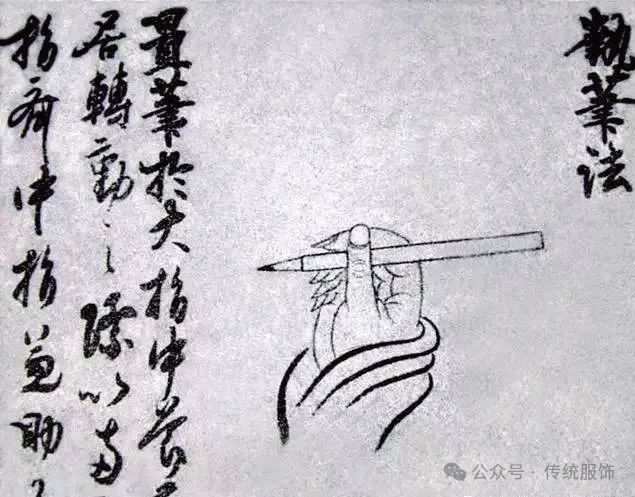 執筆法
置筆於大指中節
居轉動之際以頭
指齊中指兼助
公众号 · 传统服饰